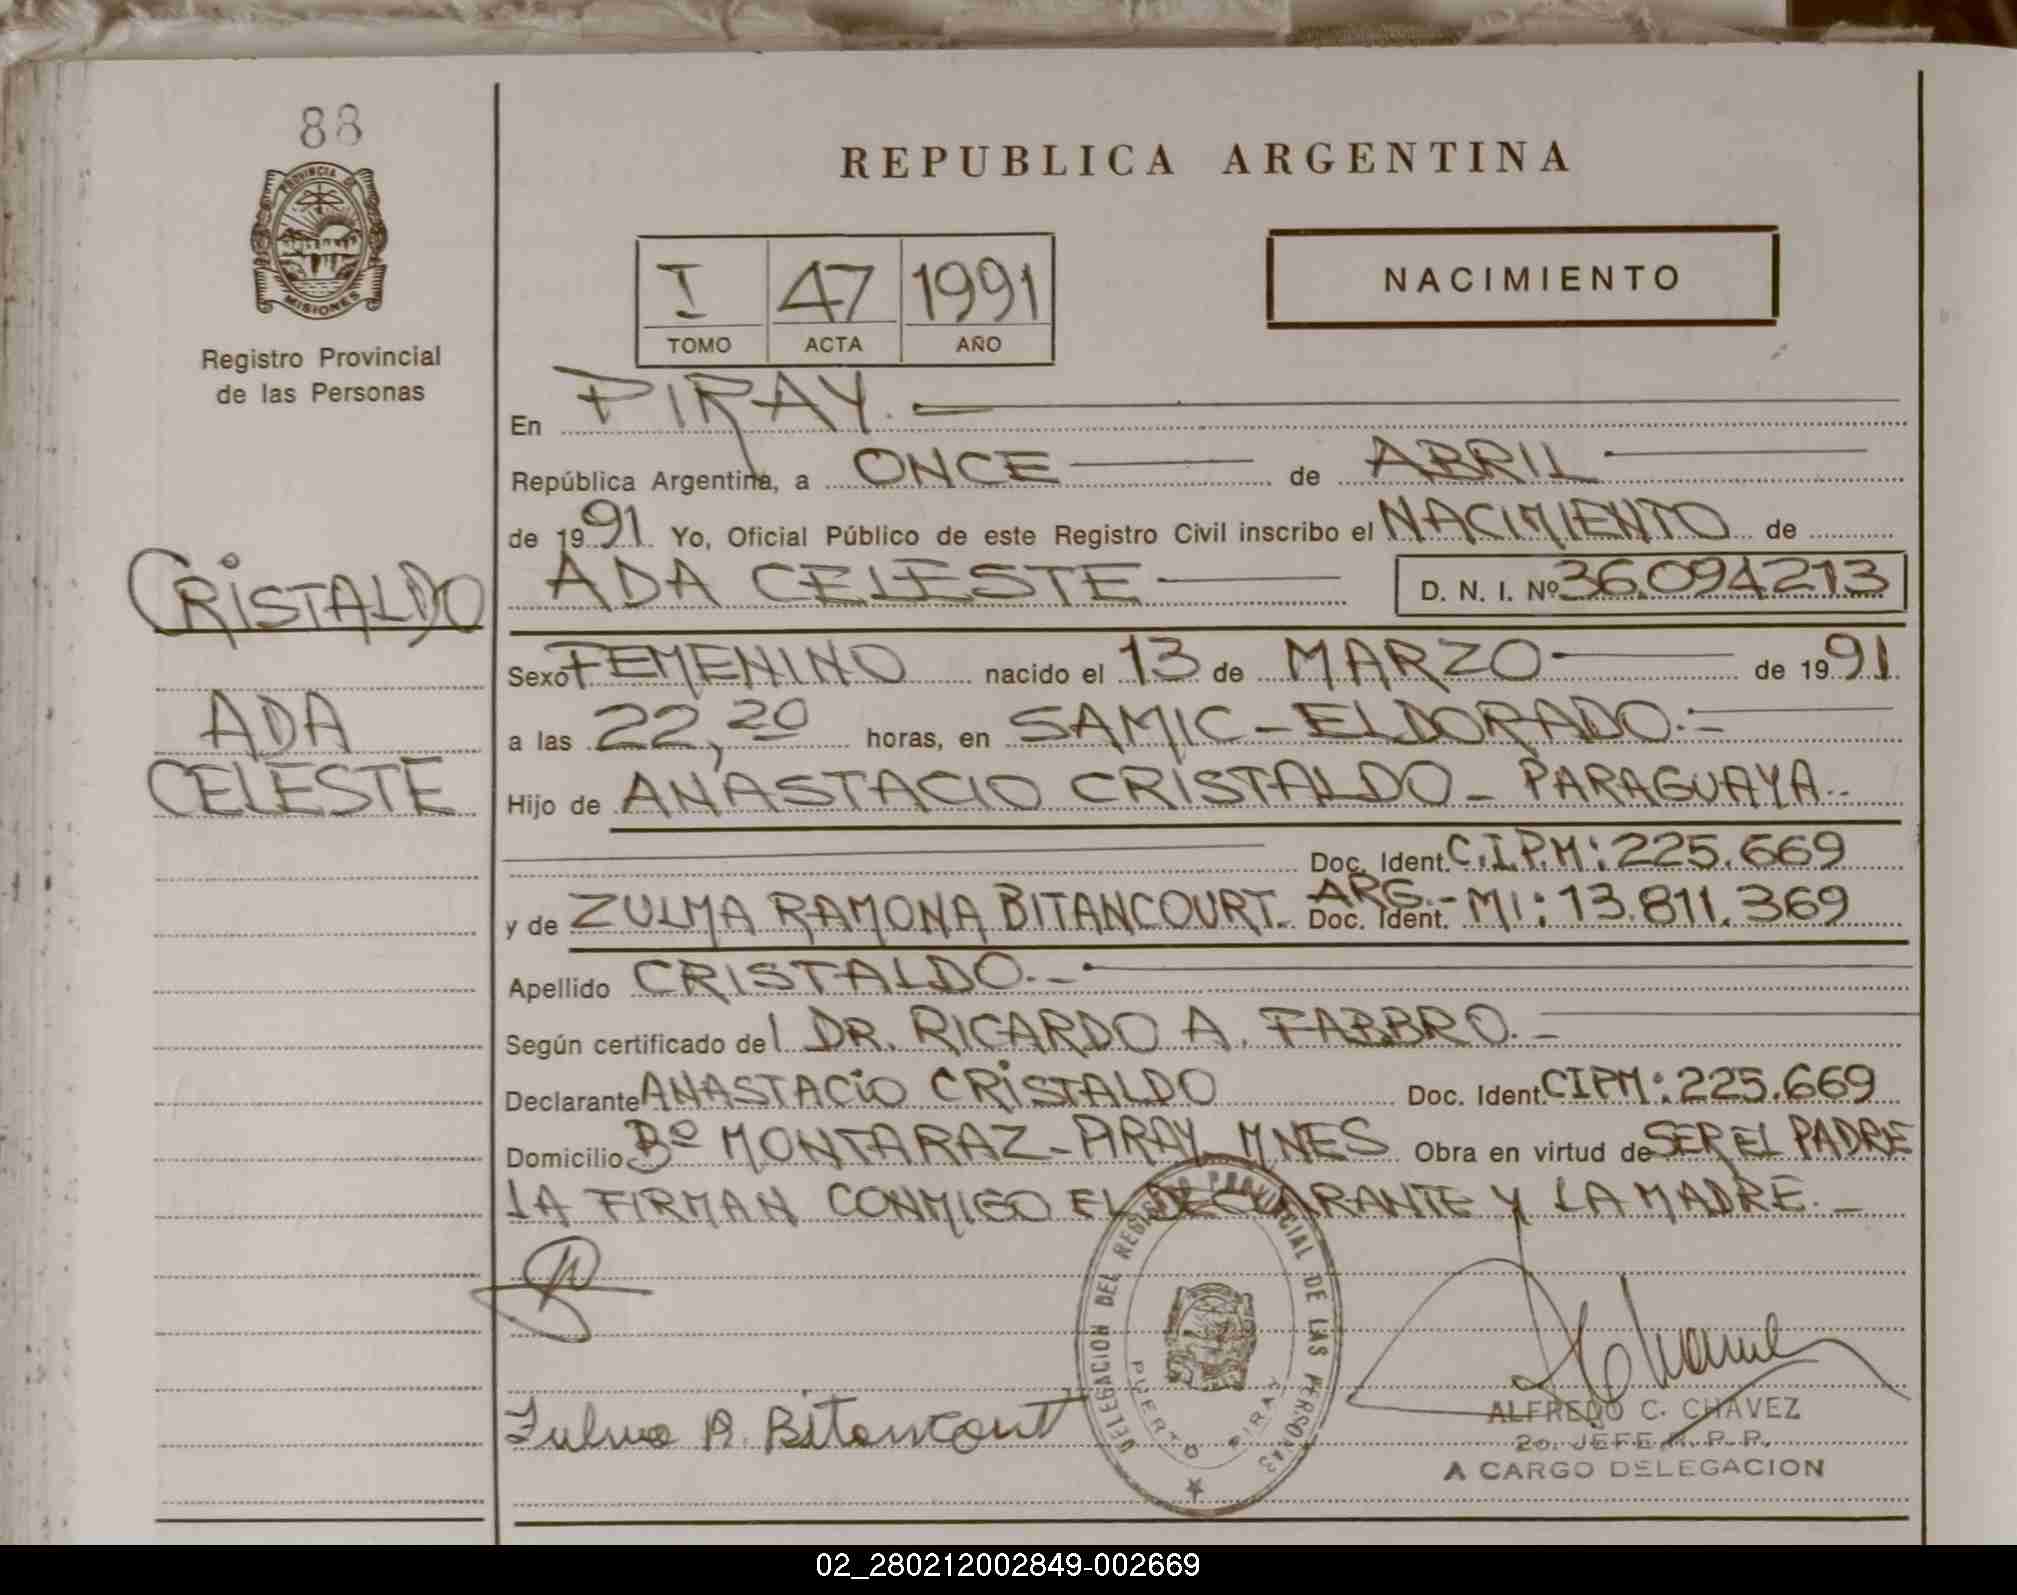 88
PROVINCIA DE
MISIONES
Registro Provincial
de las Personas
CRISTALDO
ADA
CELESTE
REPUBLICA ARGENTINA
I 47 1991
TOMO ACTA AÑO
NACIMIENTO
En PIRAY.
República Argentina, a ONCE de ABRIL
de 1991. Yo, Oficial Público de este Registro Civil inscribo el NACIMIENTO de
ADA CELESTE D. N. I. Nº 36.094213
Sexo FEMENINO nacido el 13 de MARZO de 1991.
a las 22,20 horas, en SAMIC - ELDORADO.-
Hijo de ANASTACIO CRISTALDO - PARAGUAYA.
Doc. Ident. C.I.P.M: 225.669
y de ZULMA RAMONA BITANCOURT. ARG.- Doc. Ident. MI: 13.811.369
Apellido CRISTALDO.-
Según certificado del DR. RICARDO A. FABBRO.-
Declarante ANASTACIO CRISTALDO Doc. Ident. CIPM: 225.669
Domicilio Bº MONTARAZ - PIRAY MNES Obra en virtud de SER EL PADRE
LA FIRMAN CONMIGO EL DECLARANTE Y LA MADRE.-
DELEGACION DEL REGISTRO PROVINCIAL DE LAS PERSONAS
PUERTO PIRAY
Zulma R. Bitancourt
ALFREDO C. CHAVEZ
2o. JEFE R. P. P.
A CARGO DELEGACION
02_280212002849-002669